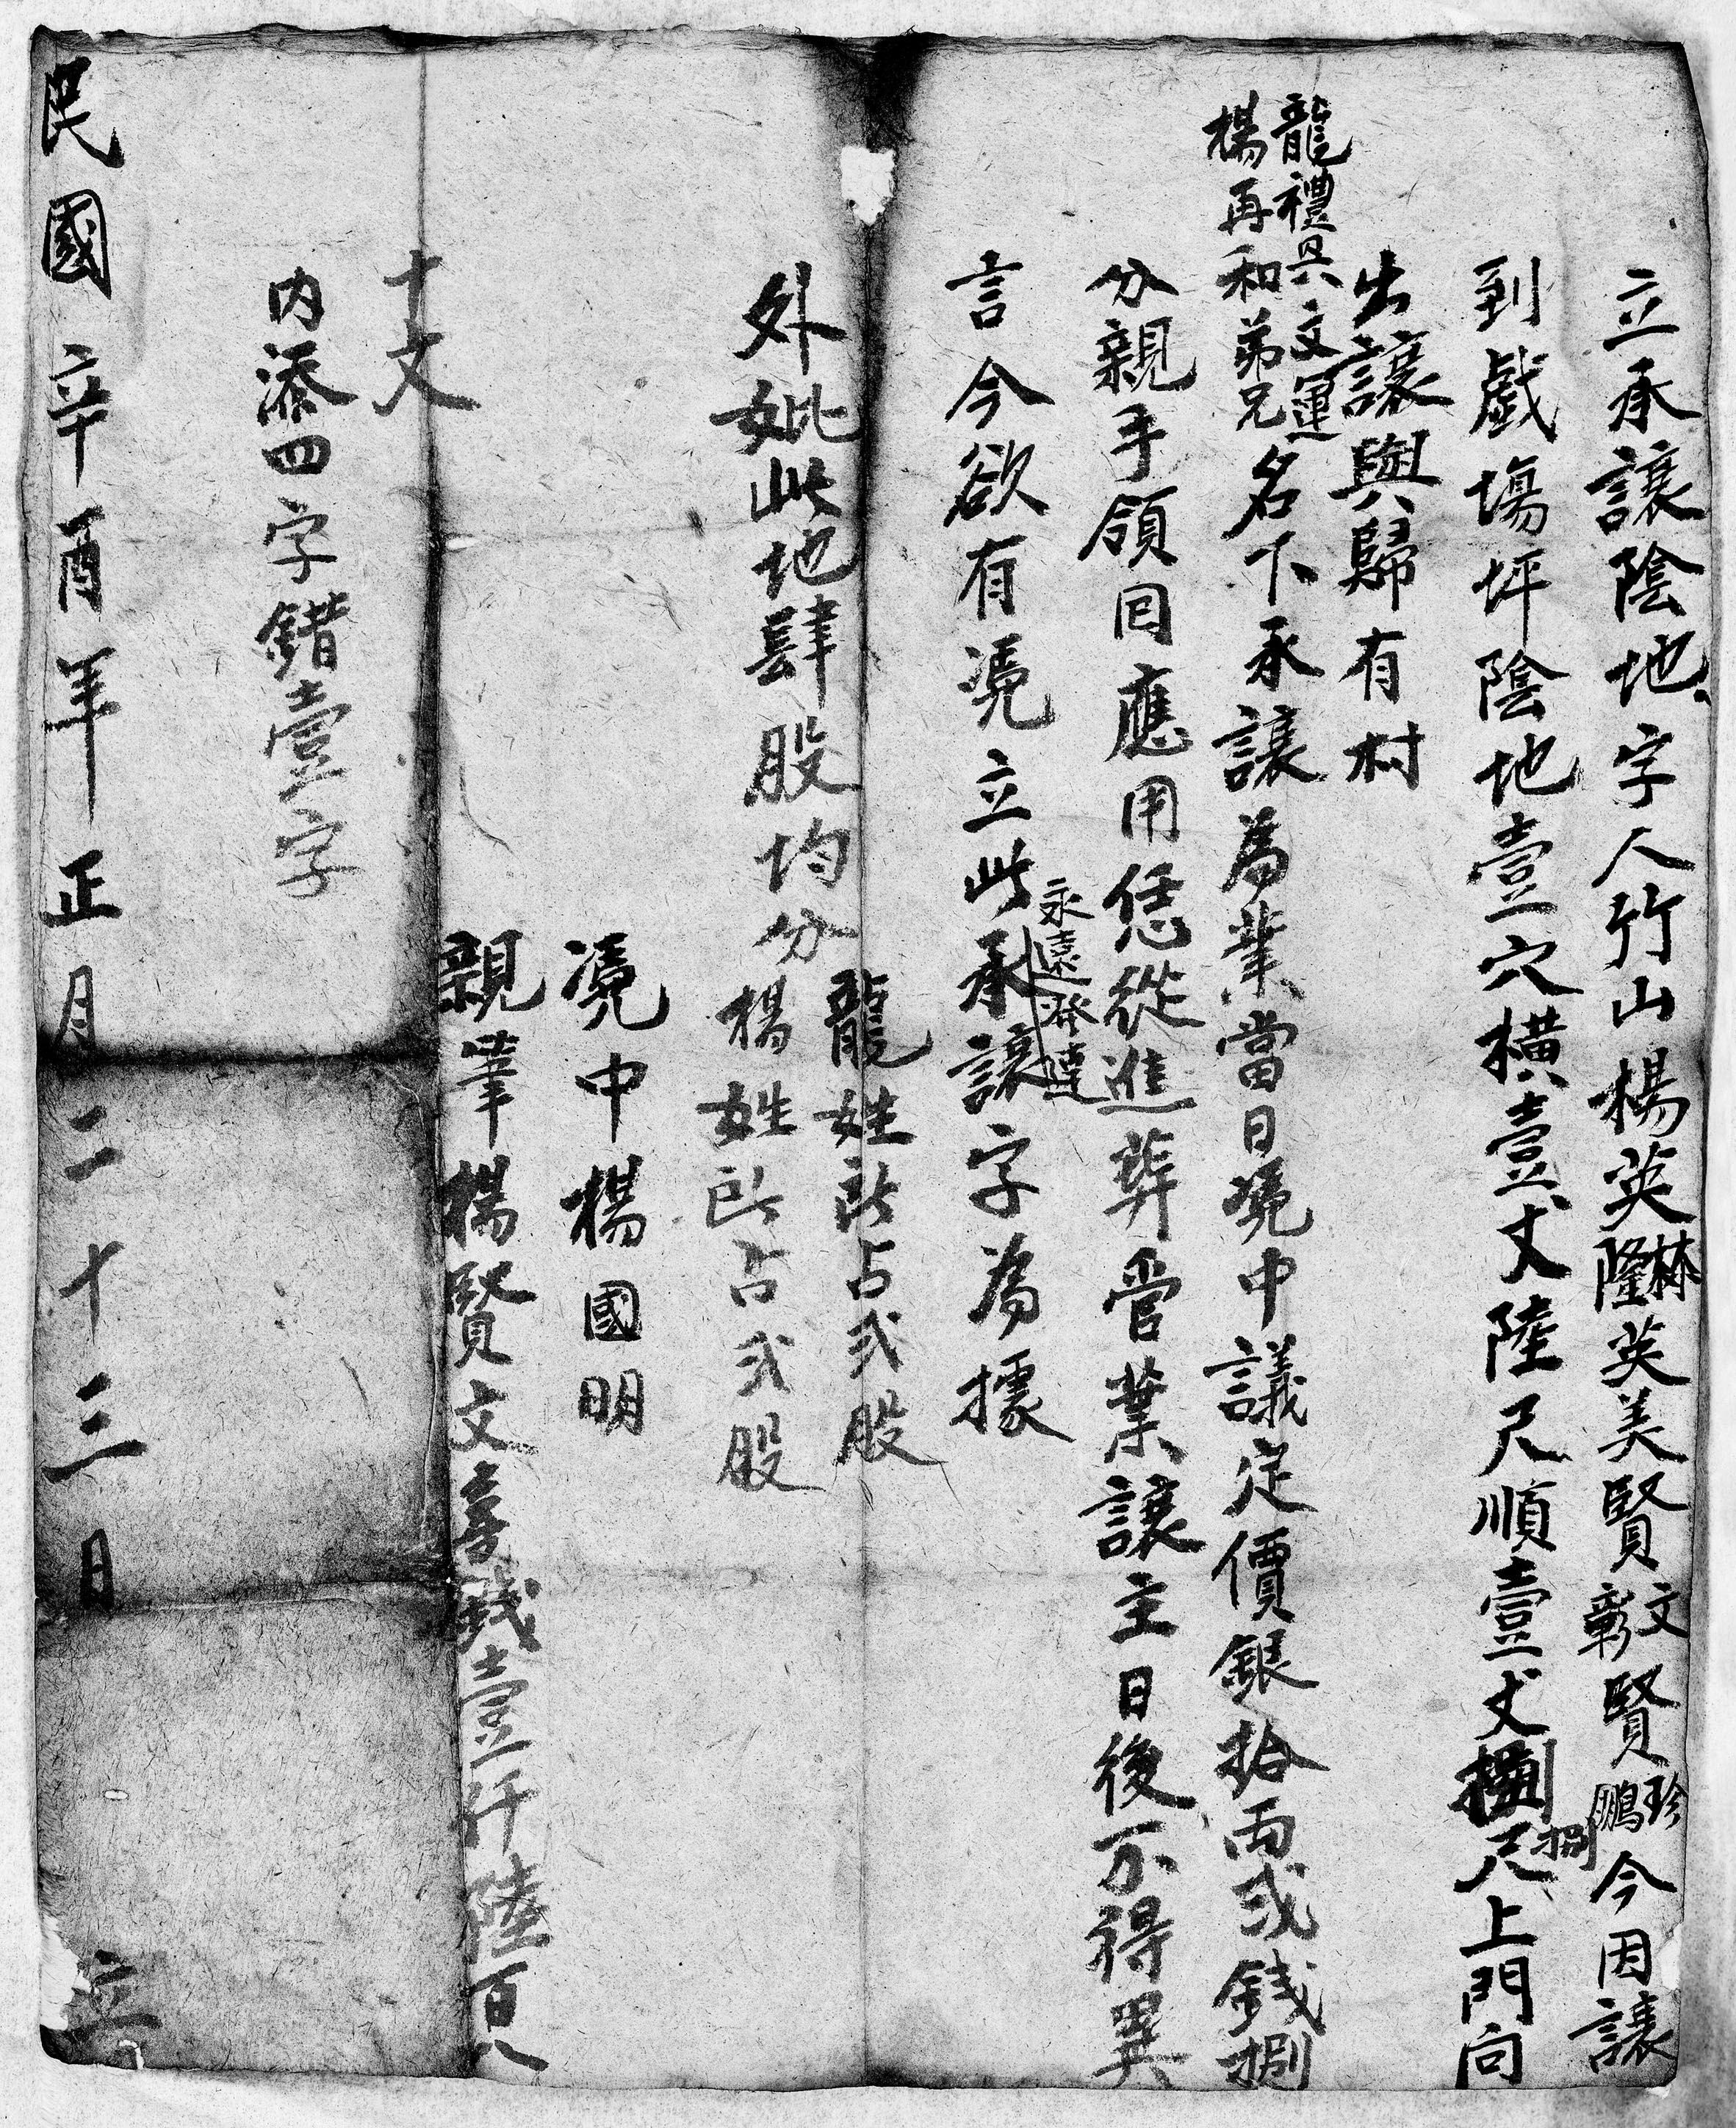 立承讓陰地字人竹山楊英林隆英美賢文彰賢珍鵬今因讓
到戲塲坪陰地壹穴橫壹丈陸尺順壹丈捌尺上門向
出讓與歸有村
龍禮具文運
楊再和弟兄名下承讓為業當日凴中議定價銀拾両弍錢捌
分親手領回應用恁從進葬管業讓主日後不得異
永遠發達
言今欲有凴立此承讓字為據
外妣此地肆股均分
龍姓所占弍股
楊姓所占弍股
凴中楊國明
親筆楊賢文喜錢壹仟陸百八
十文
內添四字錯壹字
民國辛酉年正月二十三日立